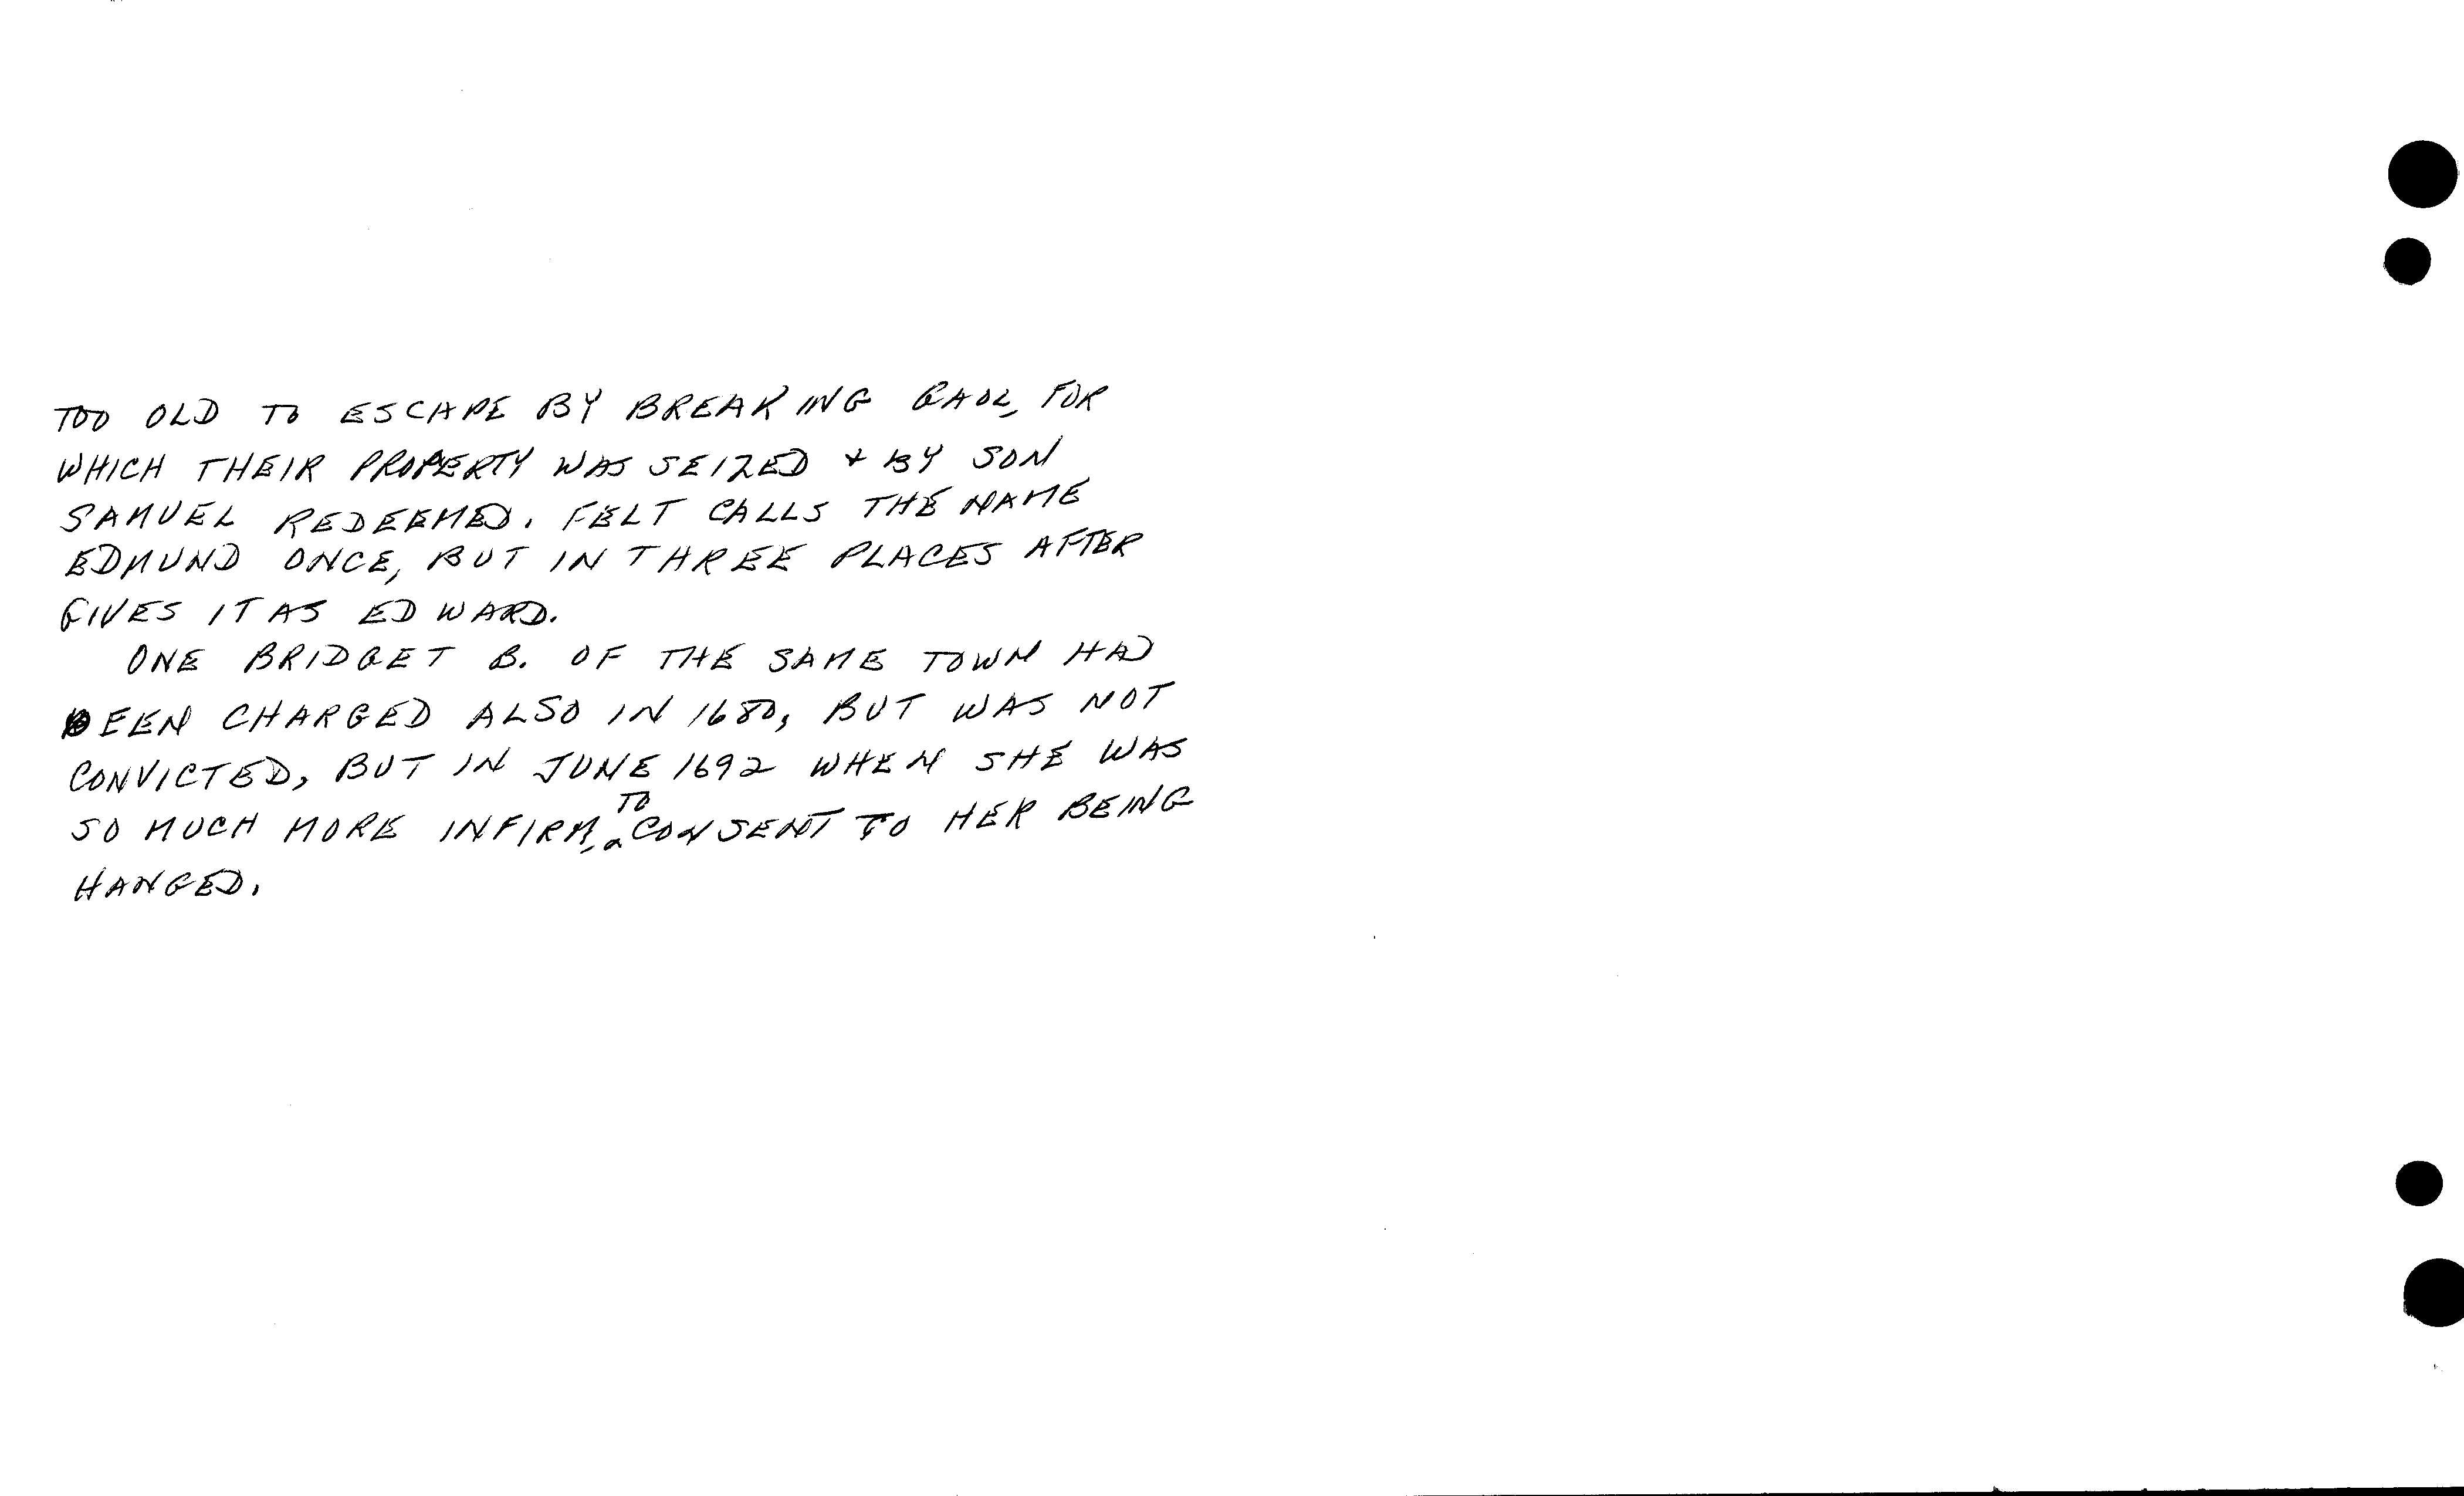 TOO OLD TO ESCAPE BY BREAKING GAOL, FOR
WHICH THEIR PROPERTY WAS SEIZED + BY SON
SAMUEL REDEEMED. FELT CALLS THE NAME
EDMUND ONCE, BUT IN THREE PLACES AFTER
GIVES IT AS EDWARD.
ONE BRIDGET B. OF THE SAME TOWN HAD
BEEN CHARGED ALSO IN 1680, BUT WAS NOT
CONVICTED, BUT IN JUNE 1692 WHEN SHE WAS
SO MUCH MORE INFIRM, TO CONSENT TO HER BEING
HANGED.